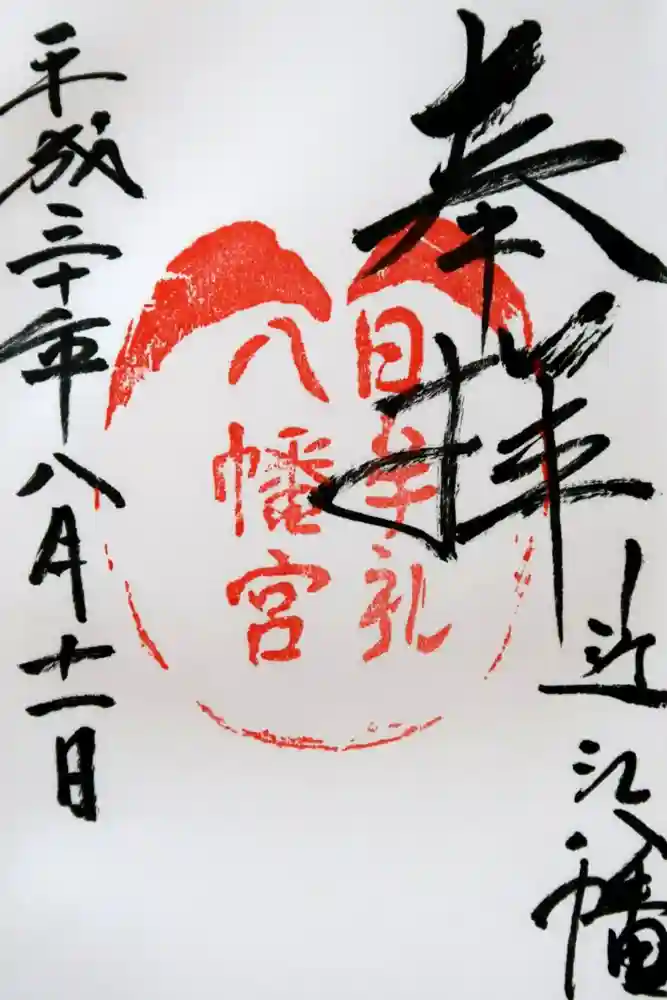 奉拝
近江八幡
日牟礼
八幡宮
平成三十年八月十一日